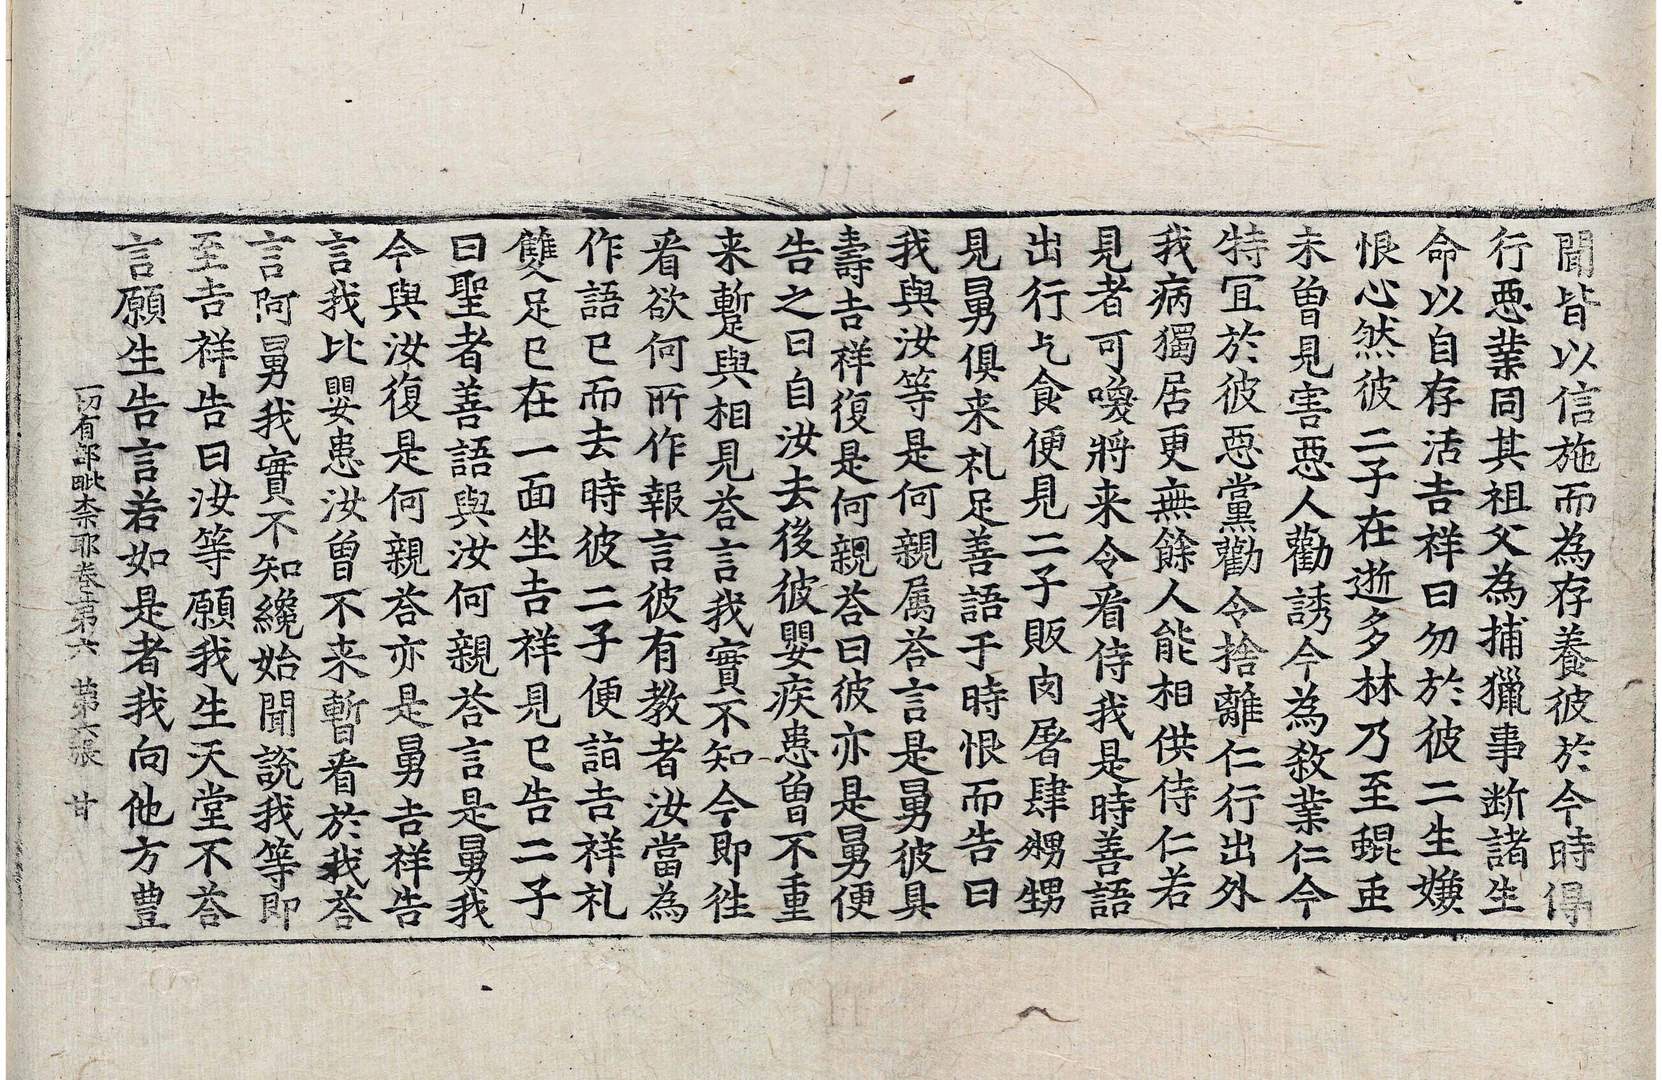 聞皆以信施而為存養彼於今時得
行惡業同其祖父為捕獵事斷諸生
命以自存活吉祥曰勿於彼二生嫌
恨心然彼二子在逝多林乃至蜫虫
未曾見害惡人勸誘今為殺業仁今
特冝於彼惡黨勸令捨離仁行出外
我病獨居更無餘人能相供侍仁若
見者可喚將来令㸔侍我是時善語
出行乞食便見二子販肉屠肆甥甥
見舅俱来礼足善語于時恨而告曰
我與汝等是何親属荅言是舅彼具
壽吉祥復是何親荅曰彼亦是舅便
告之曰自汝去後彼嬰疾患曾不重
来蹔與相見荅言我實不知今即往
㸔欲何所作報言彼有教者汝當為
作語已而去時彼二子便詣吉祥礼
雙足已在一面坐吉祥見已告二子
曰聖者善語與汝何親荅言是舅我
今與汝復是何親荅亦是舅吉祥告
言我比嬰患汝曾不来暫㸔於我荅
言阿舅我實不知纔始聞說我等即
至吉祥告曰汝等願我生天堂不荅
言願生告言若如是者我向他方豊
一切有部毗柰耶卷第六　第六張　甘